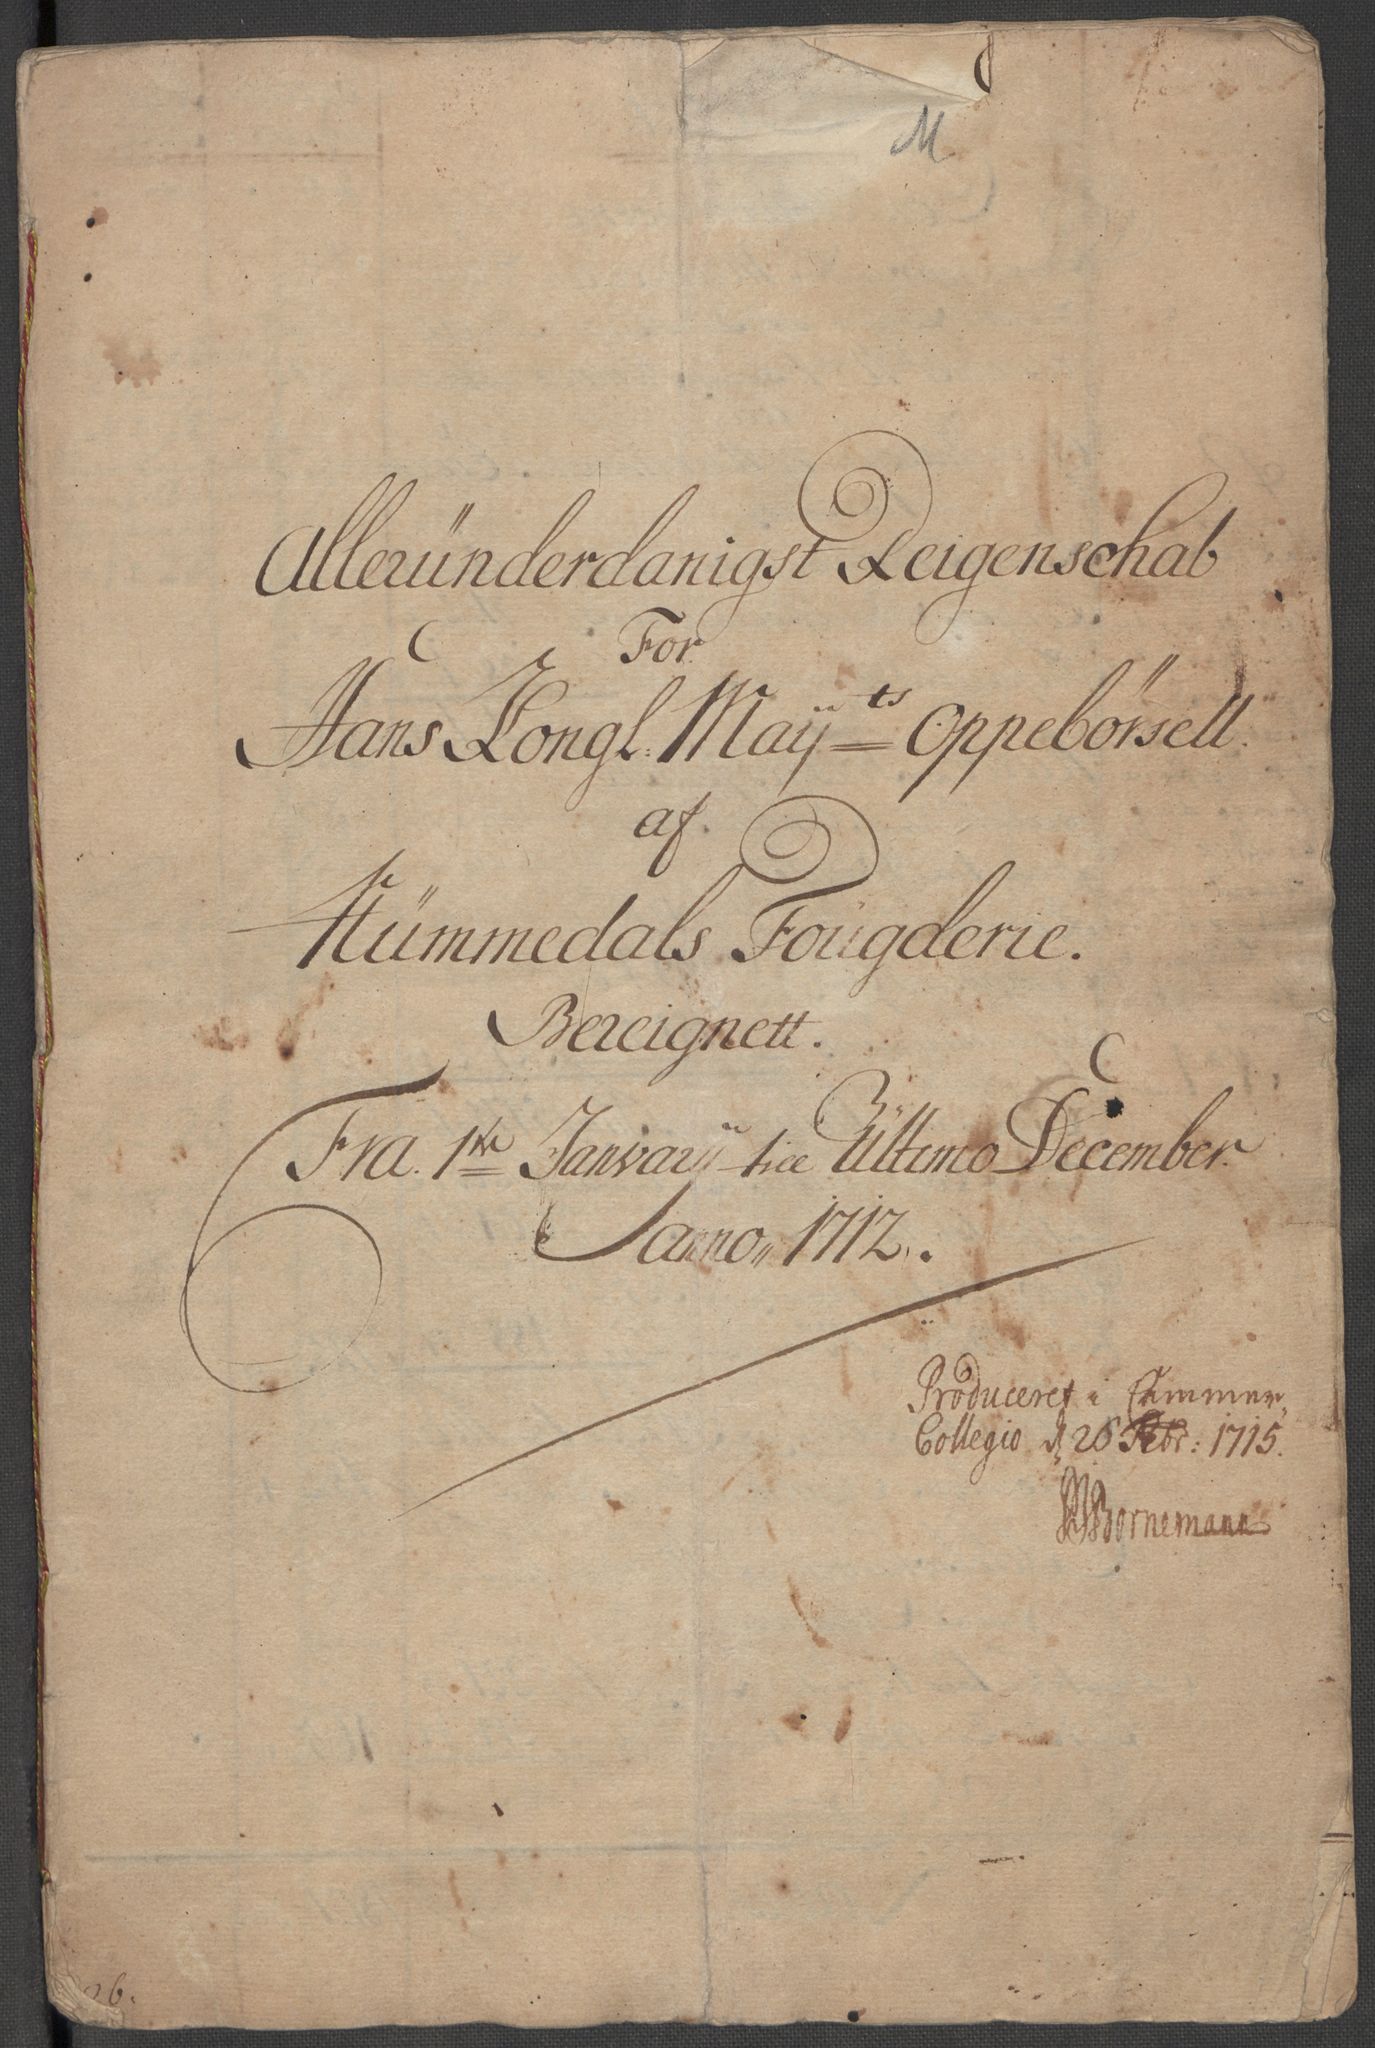 M
Alleründerdanigst Reigenschab
For
Hans Kongl: Mayÿts Oppebörsell
af
Nümmedals Foügderie.
Bereignett.
Fra. 1te Janvarÿ till Ültimo December
anno 1712.
Produceret i Cammer
Collegio d 26 Febr: 1715.
Bornemann